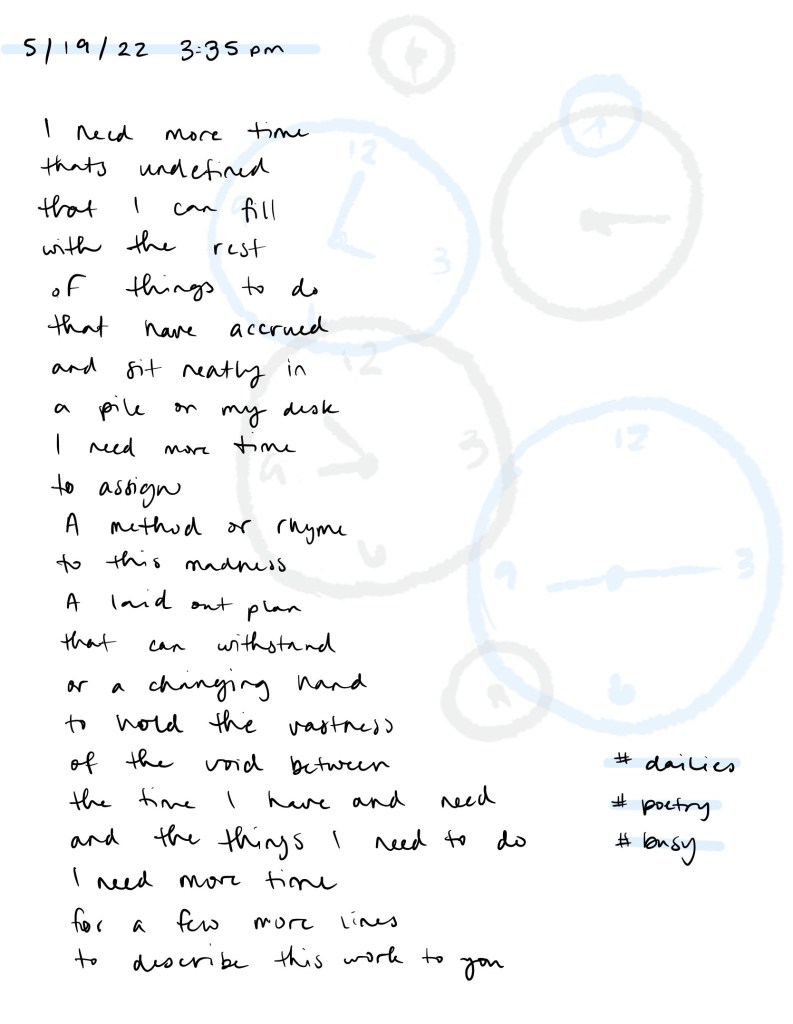 5/19/22 3:35 pm
I need more time
thats undefined
that I can fill
with the rest
of things to do
that have accrued
and sit neatly in
a pile on my desk
I need more time
to assign
A method or rhyme
to this madness
A laid out plan
that can withstand
or a changing hand
to hold the vastness
of the void between
the time I have and need
and the things I need to do
I need more time
for a few more lines
to describe this work to you
# dailies
# poetry
# busy
12
3
12
3
9
12
3
9
6